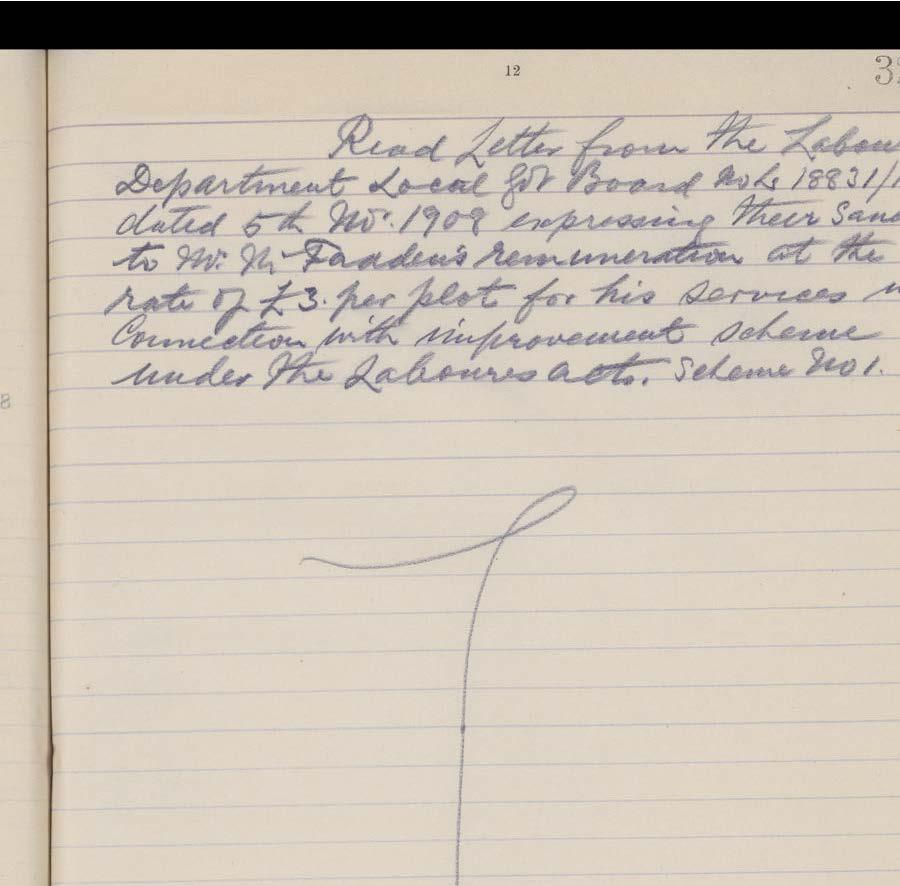 12
Read Letter from the Labour
Department Local Gov Board No L 18831/1
dated 5th Nov. 1908 expressing their Sanc
to Mr. Mc Fadden's remuneration at the
rate of £3. per plot for his services
Connection with improvement scheme
under the Laboures acts. Scheme No 1.
8